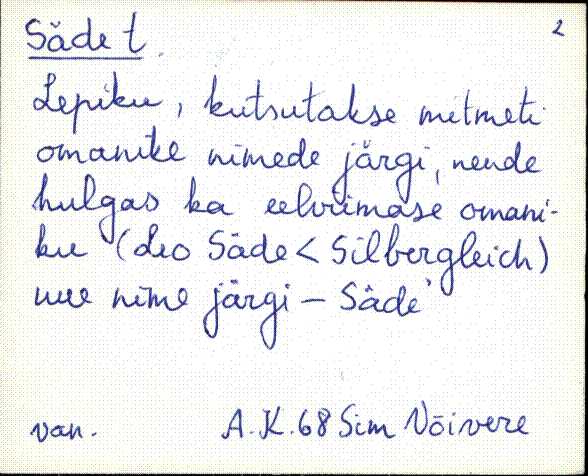 Säde t. 2
Lepiku, kutsutakse mitmeti
omanike nimede järgi, nende
hulgas ka eelviimase omani-
ku (Leo Säde < Silbergleich)
uue nime järgi – Säde
van. A.K. 68 Sim Võivere